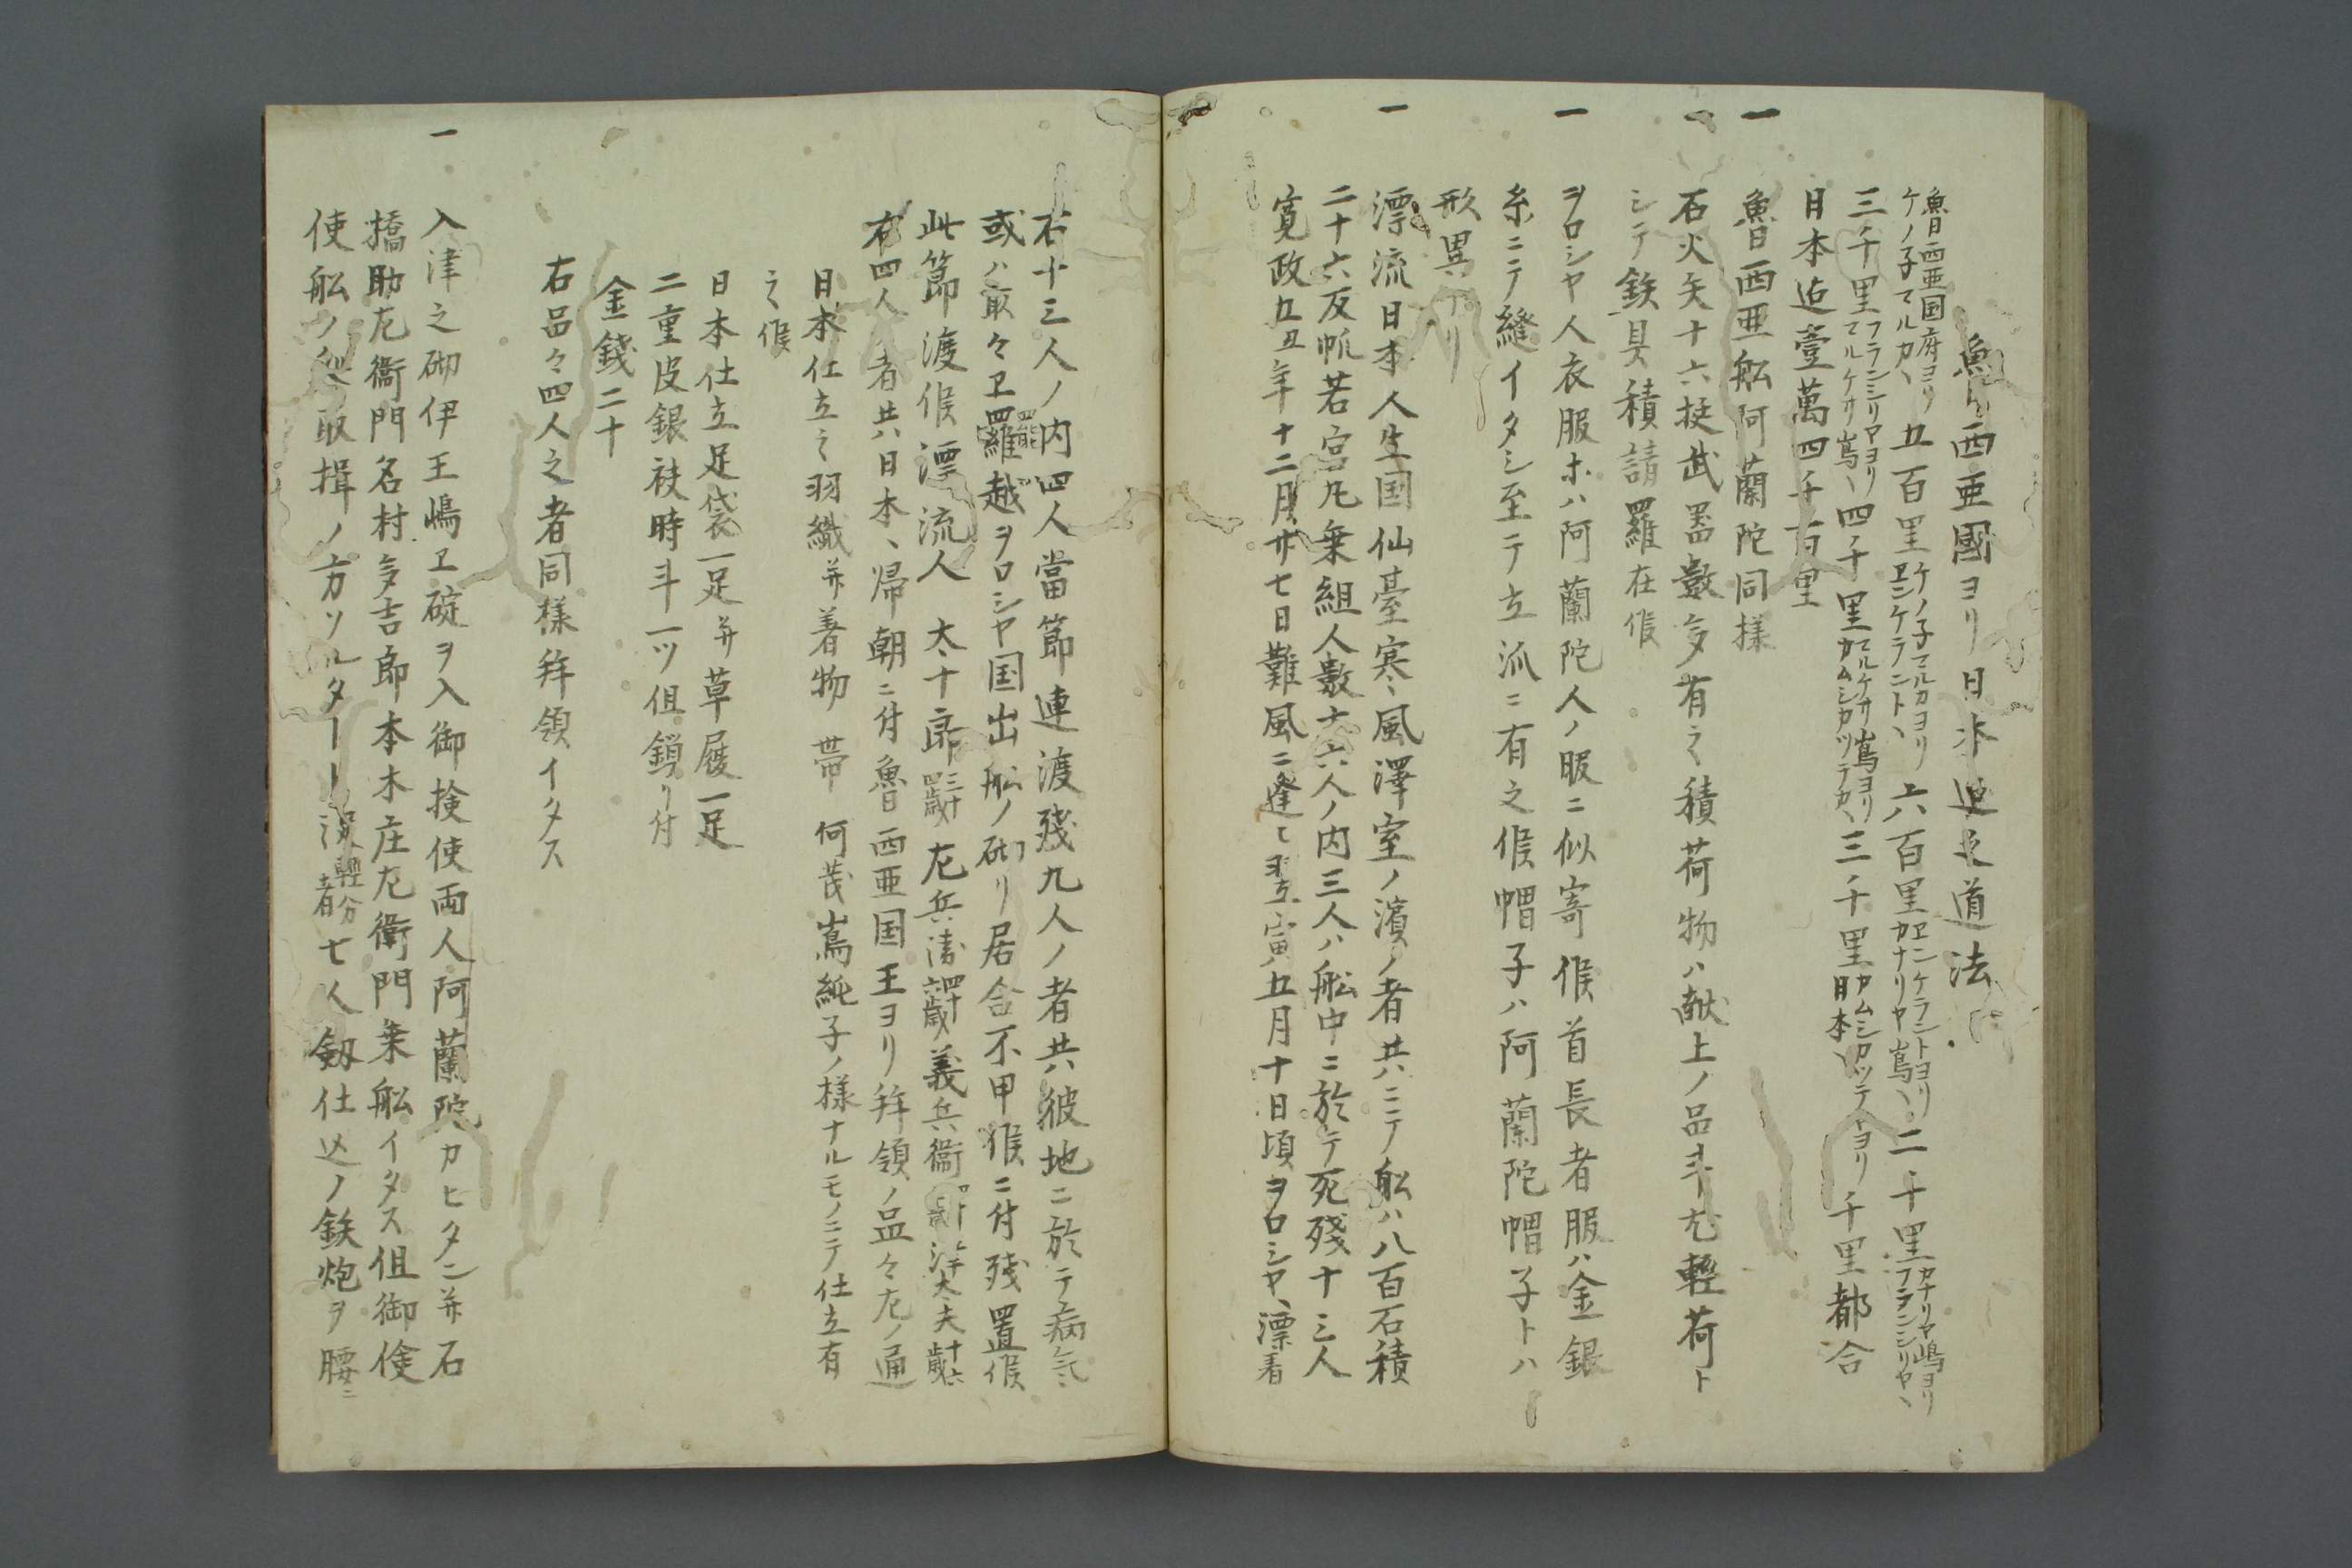 魯西亜國ヨリ日本迠之道法
魯西亜国府ヨリケノ子マルカヘ五百里ケノ子マルカヨリヱンケラントヘ六百里ヱンケラントヨリカナリヤ嶌ヘ二千里カナリヤ嶋ヨリフランシリヤヘ
三千里フランシリヤヨリマルケサ嶌ヘ四千里マルケサ嶌ヨリカムシカツテカヘ三千里カムシカツテヨリ日本ヘ千里都合
日本迠壹萬四千百里
一 魯西亜舩阿蘭陀同様
一 石火矢十六挺武噐數多有之積荷物ハ献上ノ品斗尤輕荷ト
シテ鉄具積請羅在候
一 ヲロシヤ人衣服ホハ阿蘭陀人ノ服ニ似寄候首長者服ハ金銀
糸ニテ縫イタシ至テ立派ニ有之候帽子ハ阿蘭陀帽子トハ
形異ナリ
一 漂流日本人生国仙臺寒風澤室ノ濱ノ者共ニテ舩ハ八百石積
二十六反帆若宮丸乗組人數十六人ノ内三人ハ舩中ニ於テ死殘十三人
寛政五丑年十二月廿七日難風ニ逢ヒ翌寅五月十日頃ヲロシヤヘ漂着
右十三人ノ内四人當節連渡殘九人ノ者共彼地ニ於テ病氣ニ
或ハ最々ヱ罷越ヲロシヤ国出舩ノ砌リ居合不申候ニ付残置候
此節渡候漂流人 太十郎三十四歳 左兵衛四十六歳 義兵衛 津太夫六十歳
右四人者共日本ヘ帰朝ニ付魯西亜国王ヨリ拝領ノ品々左ノ通
日本仕立之羽織并著物 帯 何茂嶌純子ノ様ナルモノニテ仕立有
之候
日本仕立足袋一足并草履一足
二重皮銀袂時斗一ツ但鎖リ付
金錢二十
右品々四人之者同様拝領イタス
一 入津之砌伊王嶋ヱ碇ヲ入御検使両人阿蘭陀カヒタン并石
橋助左衛門名村多吉郎本木庄左衛門乗舩イタス但御倹
使舩ノ節取揖ノ方ソルター 輕分者七人劔仕込ノ鉄炮ヲ腰ニ